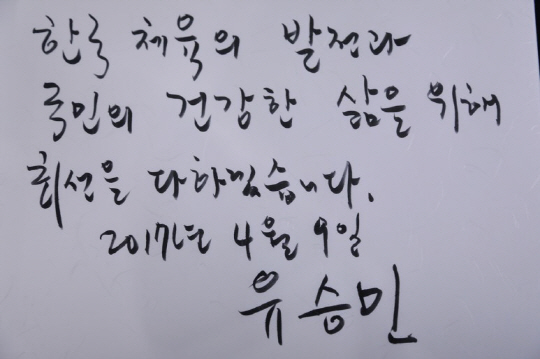 한국 체육의 발전과
국민의 건강한 삶을 위해
최선을 다하겠습니다.
2017년 4월 9일
유승민